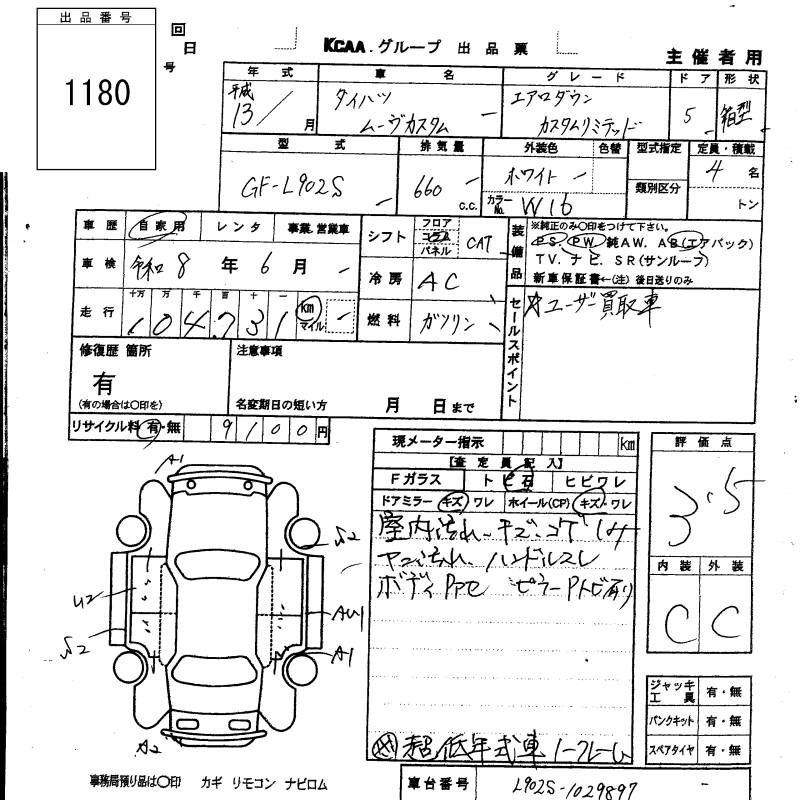 出品番号
1180
回
日
号
KCAA.グループ 出品票
主催者用
年式 車名 グレード ドア 形状
平成 13/ 月
ダイハツ
ムーヴカスタム
エアロダウン
カスタムリミテッド
5
箱型
型式 排気量 外装色 色替 型式指定 定員・積載
GF-L902S
660 c.c.
ホワイト
カラーNo. W16
類別区分
4 名
トン
車歴 自家用 レンタ 事業.営業車
車検 令和 8 年 6 月
走行 十万 万 千 百 十 一
104731 km マイル
シフト フロア コラム パネル CAT
冷房 AC
燃料 ガソリン
装備品
※純正のみ○印をつけて下さい。
PS. PW 純AW. AB(エアバック)
TV. ナビ. SR(サンルーフ)
新車保証書←(注) 後日送りのみ
セールスポイント
☆ユーザー買取車
修復歴 箇所
有
(有の場合は○印を)
注意事項
名変期日の短い方 月 日まで
リサイクル料 有・無 9100円
現メーター指示 km
【査定員記入】
Fガラス トビ石 ヒビワレ
ドアミラー キズ ワレ ホイール(CP) キズ・ワレ
室内汚れ キズ・コゲ
ヤニ汚れ ハンドルスレ
ボディ ピラーPトビ有り
超低年式車 ノークレーム
評価点
3.5
内装 外装
C C
ジャッキ工具 有・無
パンクキット 有・無
スペアタイヤ 有・無
A1
S2
U2
AU1
S2
A1
A2
事務局預り品は○印 カギ リモコン ナビロム
車台番号 L902S-1029897